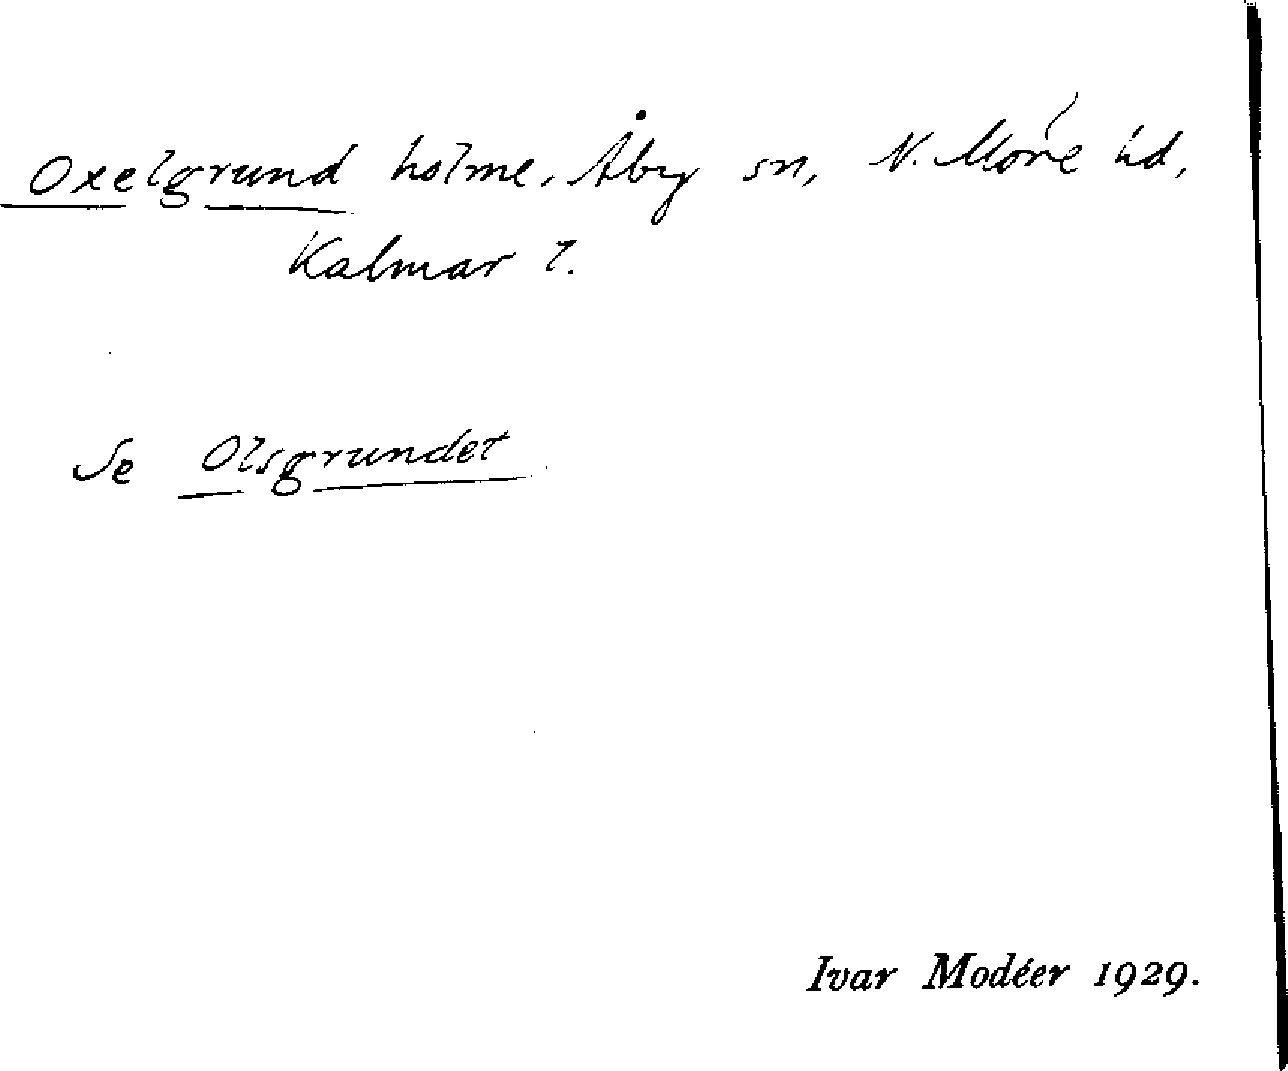 Oxelgrund holme, Åby sn, N. Möre hd,
Kalmar l.
Se Olsgrundet
Ivar Modéer 1929.